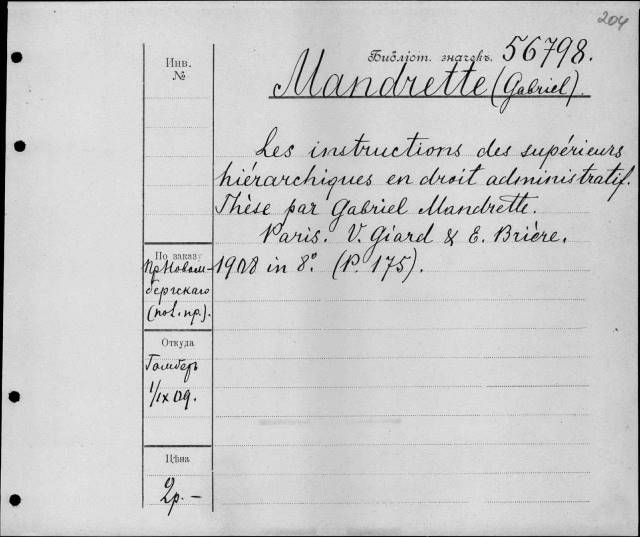 204
Библіот. значекъ 56798.
Инв.
№
Mandrette (Gabriel).
Les instructions des supérieurs
hiérarchiques en droit administratif.
Thèse par Gabriel Mandrette.
Paris. V. Giard & E. Brière.
1908 in 8º. (P. 175).
По заказу
пр. Новом-
бергскаго
(pol. пр.).
Откуда
Гомберъ
1/IX 09.
Цѣна
2р.—